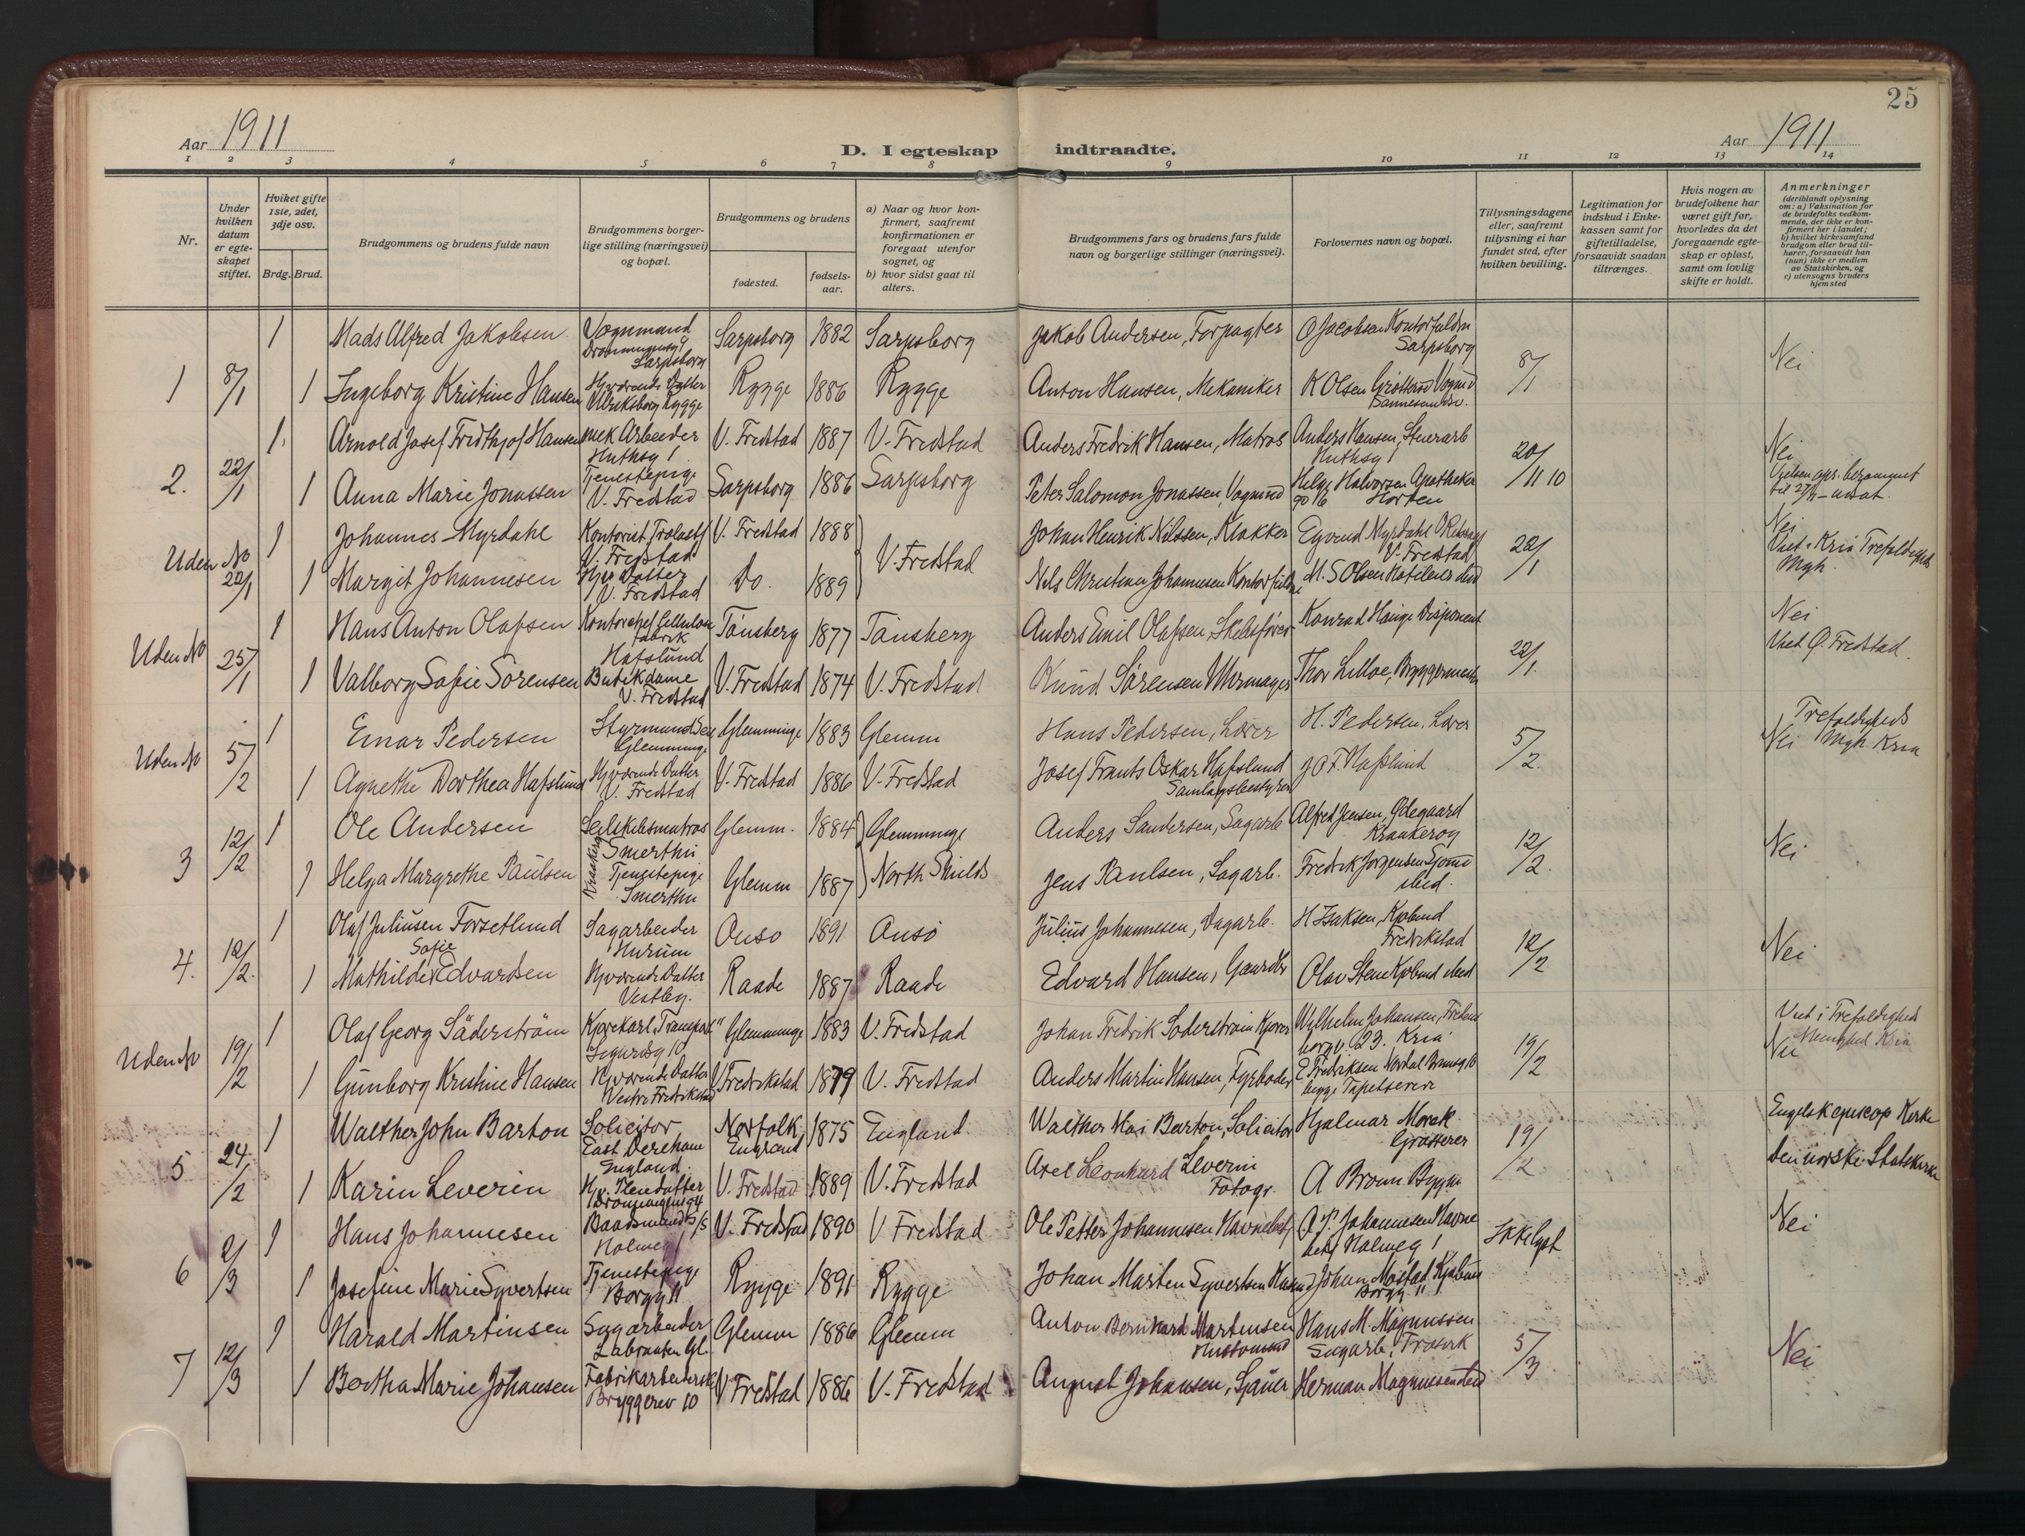 25
Aar 1911
D. I egteskap indtraadte.
Aar 1911
1 2 3 4 5 6 7 8 9 10 11 12 13 14
Nr.
Under hvilken datum er egteskapet stiftet.
Hviket gifte 1ste, 2det, 3dje osv.
Brdg. Brud.
Brudgommens og brudens fulde navn
Brudgommens borgerlige stilling (næringsvei) og bopæl.
Brudgommens og brudens
fødested.
fødselsaar.
a) Naar og hvor konfirmert, saafremt konfirmationen er foregaat utenfor sognet, og
b) hvor sidst gaat til alters.
Brudgommens fars og brudens fars fulde navn og borgerlige stillinger (næringsvei).
Forlovernes navn og bopæl.
Tillysningsdagene eller, saafremt tillysning ei har fundet sted, efter hvilken bevilling.
Legitimation for indskud i Enkekassen samt for giftetilladelse, forsaavidt saadan tiltrænges.
Hvis nogen av brudefolkene har været gift før, hvorledes da det foregaaende egteskap er opløst, samt om lovlig skifte er holdt.
Anmerkninger (deriblandt oplysning om: a) Vaksination for de brudefolks vedkommende, der ikke er konfirmert her i landet; b) hvilket kirkesamfund brudgom eller brud tilhører, forsaavidt han (hun) ikke er medlem av Statskirken, og c) utensogns bruders hjemsted
1 Mads Alfred Jakobsen Vognmand Dronningensg Sarpsborg Sarpsborg 1882 Sarpsborg Jakob Andersen, Forpagter O Jacobsen Kontorfuldm Sarpsborg Nei
1 8/1 1 Ingeborg Kristine Hansen Hjværende Datter Ulriksborg Rygge Rygge 1886 Rygge Anton Hansen, Mekaniker K Olsen 8/1
1. Arnold Josef Fridthjof Hansen mek Arbeider Huthsg 1 V. Fredstad 1887 V. Fredstad Anders Fredrik Hansen, Matros Anders Hansen, Stenarb Huthsg 1 Nei
2. 22/1 1 Anna Marie Jonassen Tjenestepige V. Fredstad Sarpsborg 1886 Sarpsborg Peter Salomon Jonassen, Vogmnd Helge Halvorsen Apotheker Horten 20/11 10
1 Johannes Myrdahl Kontorist V. Fredstad V. Fredstad 1888 V. Fredstad Johan Henrik Nilssen, Klokker Eyvind Myrdahl V. Fredstad Nei
Uden No 22/1 1 Margit Johannesen Hjv Datter V. Fredstad Do. 1889 Nils Christian Johannesen Kontorfuldm M. S Olsen 22/1 Viet i Kria Trefoldigheds Mgh.
1 Hans Anton Olafsen Kontorchef Cellulosefabrik Hafslund Tønsberg 1877 Tønsberg Anders Emil Olafsen, Skibsfører Konrad Hauge Disponent Nei
Uden No 25/1 1 Valborg Sofie Sørensen Butikdame V. Fredstad V. Fredstad 1874 V. Fredstad Knud Sørensen Uhrmager Thor Lilloe, Bryggermester 22/1. Viet Ø. Fredstad.
1 Einar Pedersen Glemminge Glemminge 1883 Glemm Hans Pedersen, Lærer H. Pedersen, Lærer Trefoldigheds Mgh Kria
Uden No 5/2 1 Agnethe Dorthea Hafslund Hjværende Datter V. Fredstad V. Fredstad 1886 V. Fredstad Josef Frants Oskar Hafslund Samlagsbestyrer J O F. Hafslund 5/2. Nei
1 Ole Andersen Seilskibsmatros Smerthu Glemm. 1884 Glemminge Anders Sandersen, Sagarb Alfred Jensen, Ødegaard Krankerøy
3 12/2 1 Helga Margrethe Paulsen Tjenestepige Smerthu Glemm 1887 North Shields Jens Paulsen, Sagarb. Fredrik Jørgensen 12/2. Nei
1 Olaf Juliusen Forsetlund Sagarbeider Hurum Onsø 1891 Onsø Julius Johannesen, Dagarb. H Isaksen, Kjøbmd Fredrikstad
4. 12/2. 1 Mathilde Sofie Edvardsen Hjværende Datter Vestby. Raade 1887 Raade Edvard Hansen, Gaardbr Olav Stene Kjøbmd ibid 12/2 Nei
1 Olaf Georg Säderström Kjørekarl "Transport" Sigurdsg 10 Glemminge 1883 V. Fredstad Johan Fredrik Soderstrøm Kjører Wilhelm Johansen, 23. Kria Viet i Trefoldigheds Menighed Kria
Uden No 19/2 1 Gunborg Kristine Hansen Hjværende Datter Vestre Fredrikstad V Fredrikstad 1879 V. Fredstad Anders Martin Hansen, Fyrbøder E Fredriksen 19/2 Nei
1 Walther John Barton Solicitor, East Dereham England Norfolk England 1875 England. Walther Barton, Solicitor Hjalmar Grosserer Engelsk episcop Kirke
5 24/2 1 Karin Leverin Hjv. Pleiedatter V. Fredstad 1889 V. Fredstad Axel Leonhard Leverin Fotogr. A Broun 19/2 den norske Statskirke
1 Hans Johannesen Holmeg 1 V. Fredstad 1890 V Fredstad Ole Petter Johannesen Havnebetj A P. Johannesen Havnebetj Holmeg 1 Ikke lyst Nei
6 2/3 1 Josefine Marie Syvertsen Tjenestepige Borgg 11 Rygge 1891 Rygge Johan Marten Syvertsen Johan Mostad Kjøbm Borgg 11
1 Harald Martinsen Sagarbeider Glemm 1886 Glemm Anton Bernhard Martensen Hans M. Magnussen Sagarb.
7 12/3 1 Bertha Marie Johansen Fabrikarbeiderske Bryggeriv 10 V Fredstad 1886 V. Fredstad August Johansen, Sjauer Herman Magnussen ibid 5/3 Nei